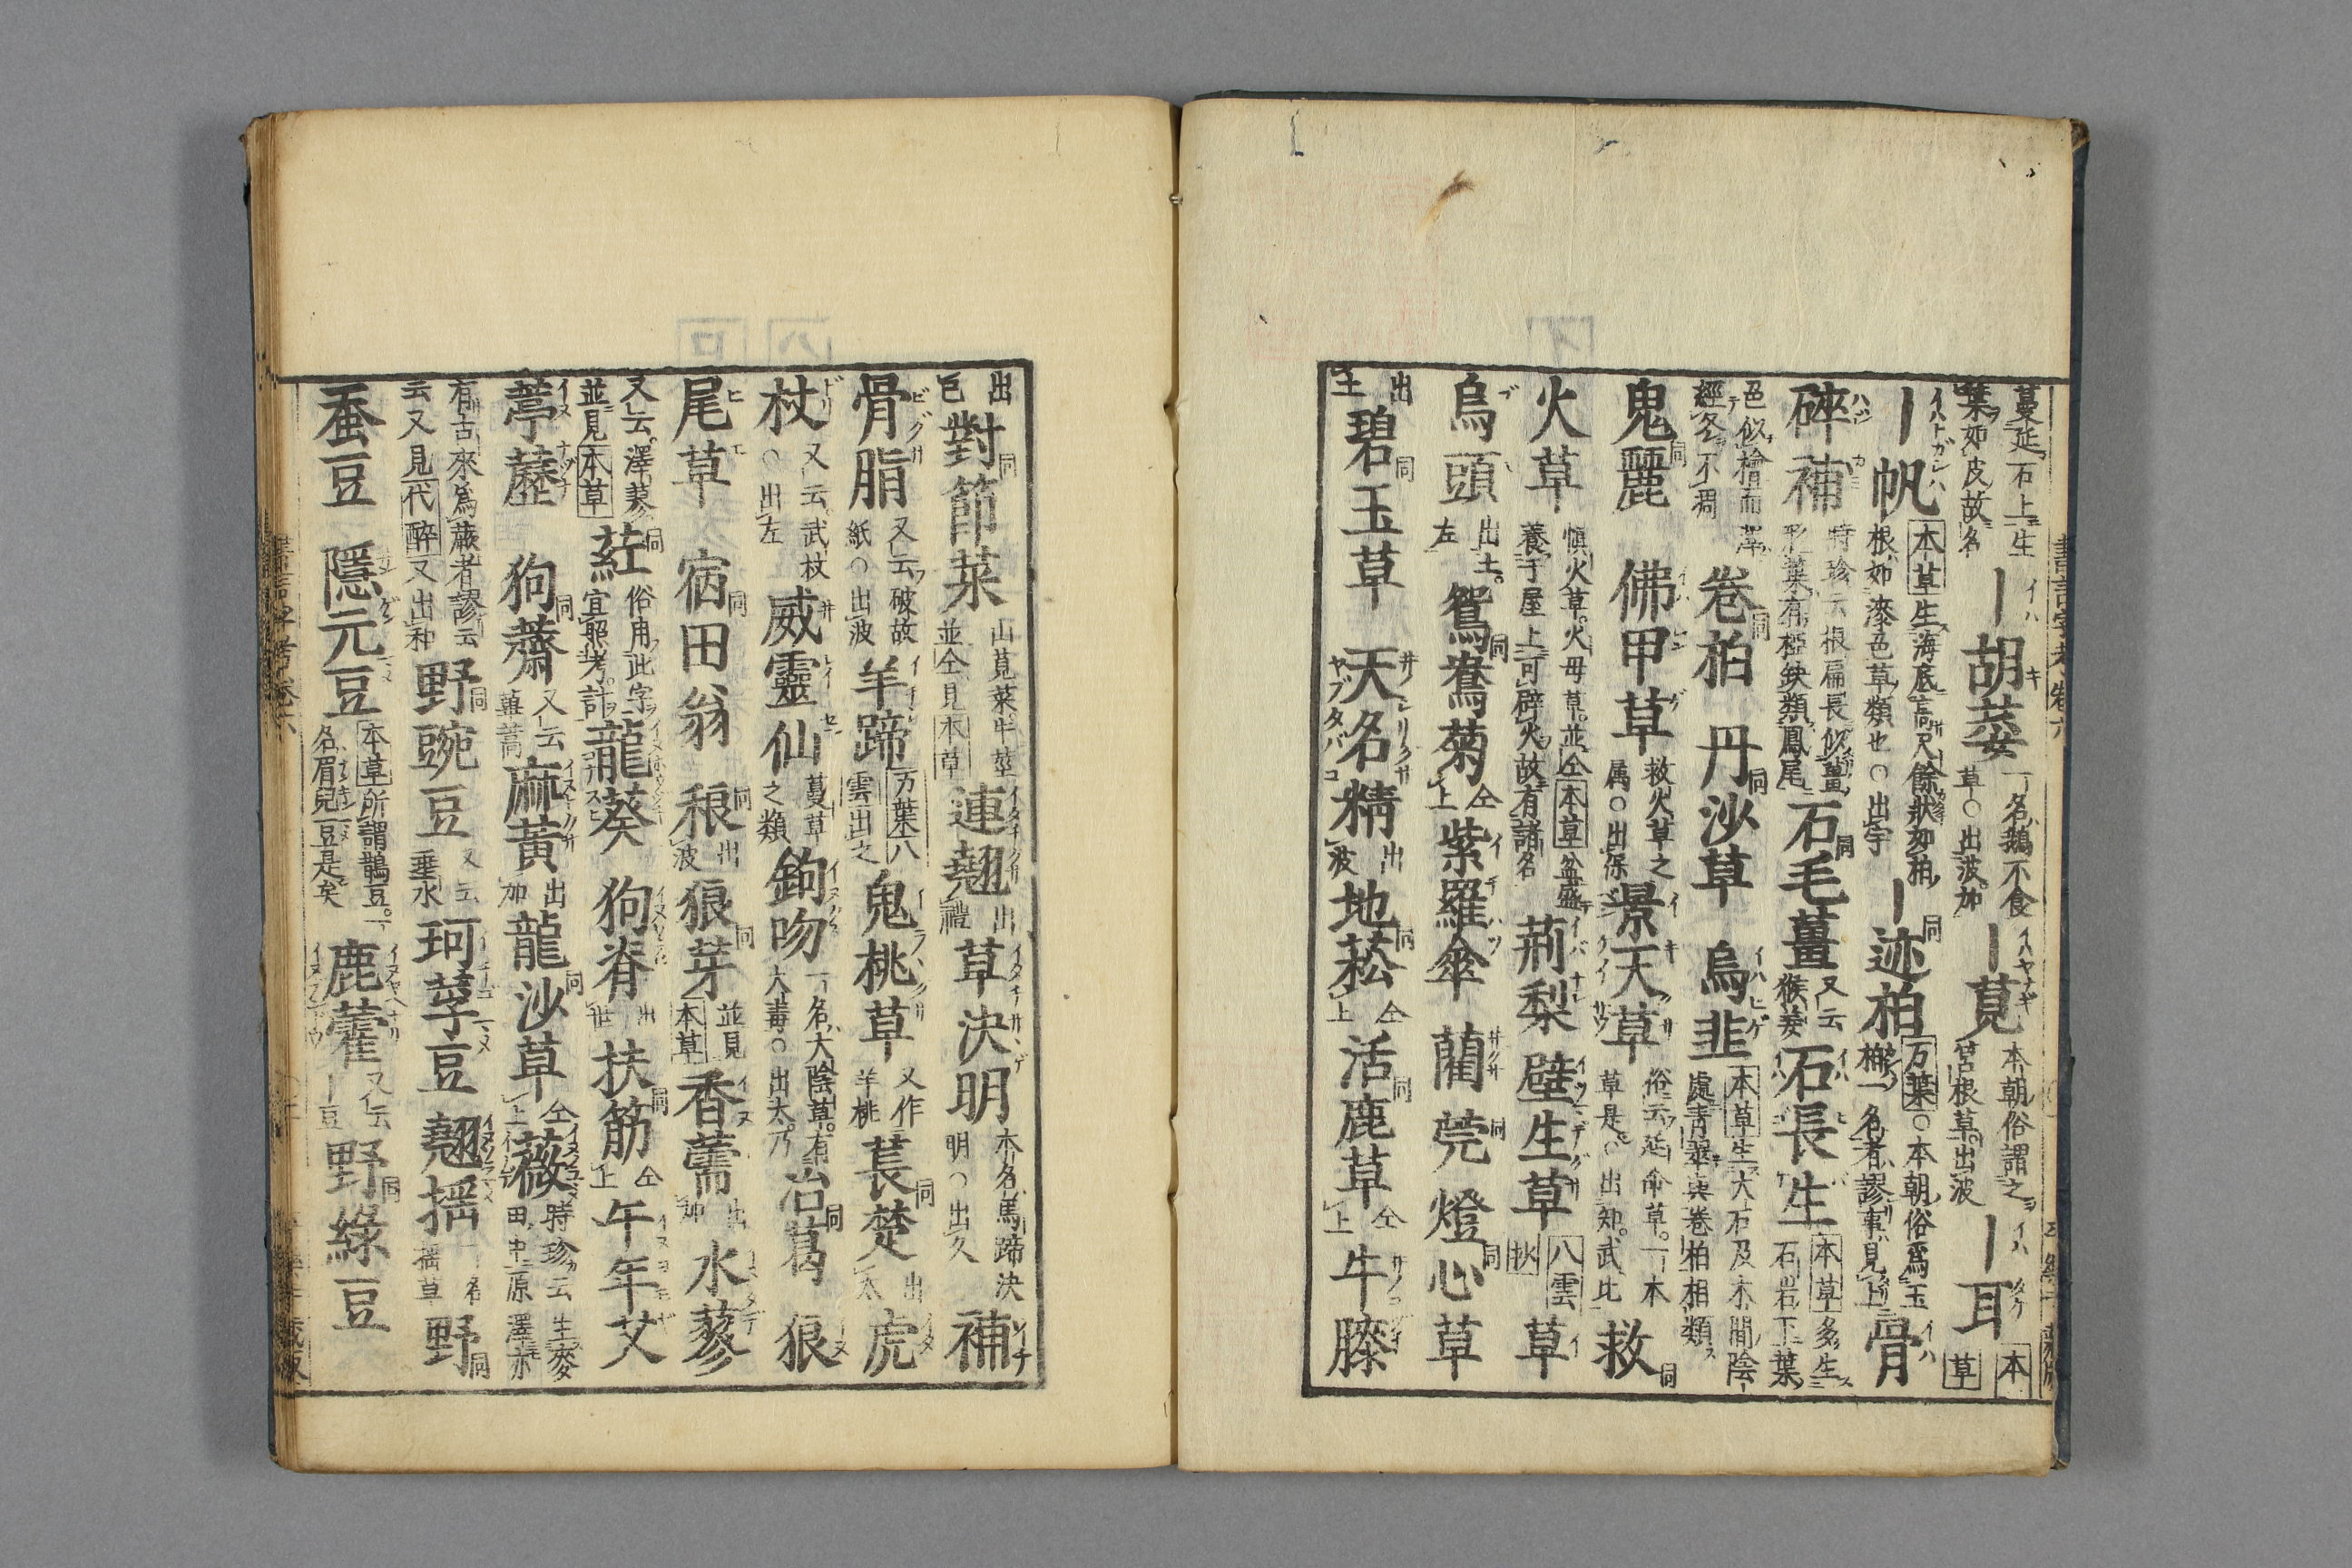 蔓延石上生
葉如皮故名
｜胡荽
一名鵝不食
草○出波加
｜莧
本朝俗謂之
筥根草出波
｜耳
本
草
｜帆
本草生海底高尺餘狀如柏
根如漆色草類也○出宇
｜迹柏
万葉○本朝俗爲玉
椒一名者謬事見上
骨
碎補
時珍云根扁長似薑
形葉有椏缺類鳳尾
石毛薑
又云
猴薑
石長生
本草多生
石岩下葉
色似檜而澤
經冬不凋
卷柏 丹沙草 烏韭
本草生大石及木間陰
處青翠與卷柏相類
鬼麗 佛甲草
救火草之
属○出保
景天草
俗云延命草一本
草是○出知武比
救
火草
愼火草火母草並仝本草盆盛
養于屋上可辟火故有諸名
荊梨 壁生草
八雲
抄
草
烏頭
出土
左
鴛鴦菊
仝
上
紫羅傘 藺 莞 燈心草
出
土
碧玉草 天名精
出
波
地菘
仝
上
活鹿草
仝
上
牛膝
出
巴
對節菜
山莧菜牛莖
並仝見本草
連翹
出
禮
草決明
本名馬蹄決
明○出久
補
骨脂
又云破故
紙○出波
羊蹄
万葉八
雲出之
鬼桃草
又作
羊桃
萇楚
出
太
虎
杖
又云武杖
○出左
威靈仙
蔓草
之類
鉤吻
一名大陰草有
大毒○出太乃
冶葛 狼
尾草 宿田翁 稂
出
波
狼芽
並見
本草
香薷
出
如
水蓼
又云澤蓼
並見本草
葒
俗用此字
宜照考計
龍葵 狗脊
出
世
扶筋
仝
上
午年艾
葶藶 狗薺
又云
蕇蒿
麻黃
出
加
龍沙草
仝
上
薇
時珍云生麥
田中原澤亦
有古來爲蕨者謬云
云又見代醉又出和
野豌豆
又云
垂水
珂孚豆 翹摇
一名
摇草
野
蚕豆 隱元豆
本草所謂鵲豆一
名眉兒豆是矣
鹿藿
又云
｜豆
野綠豆